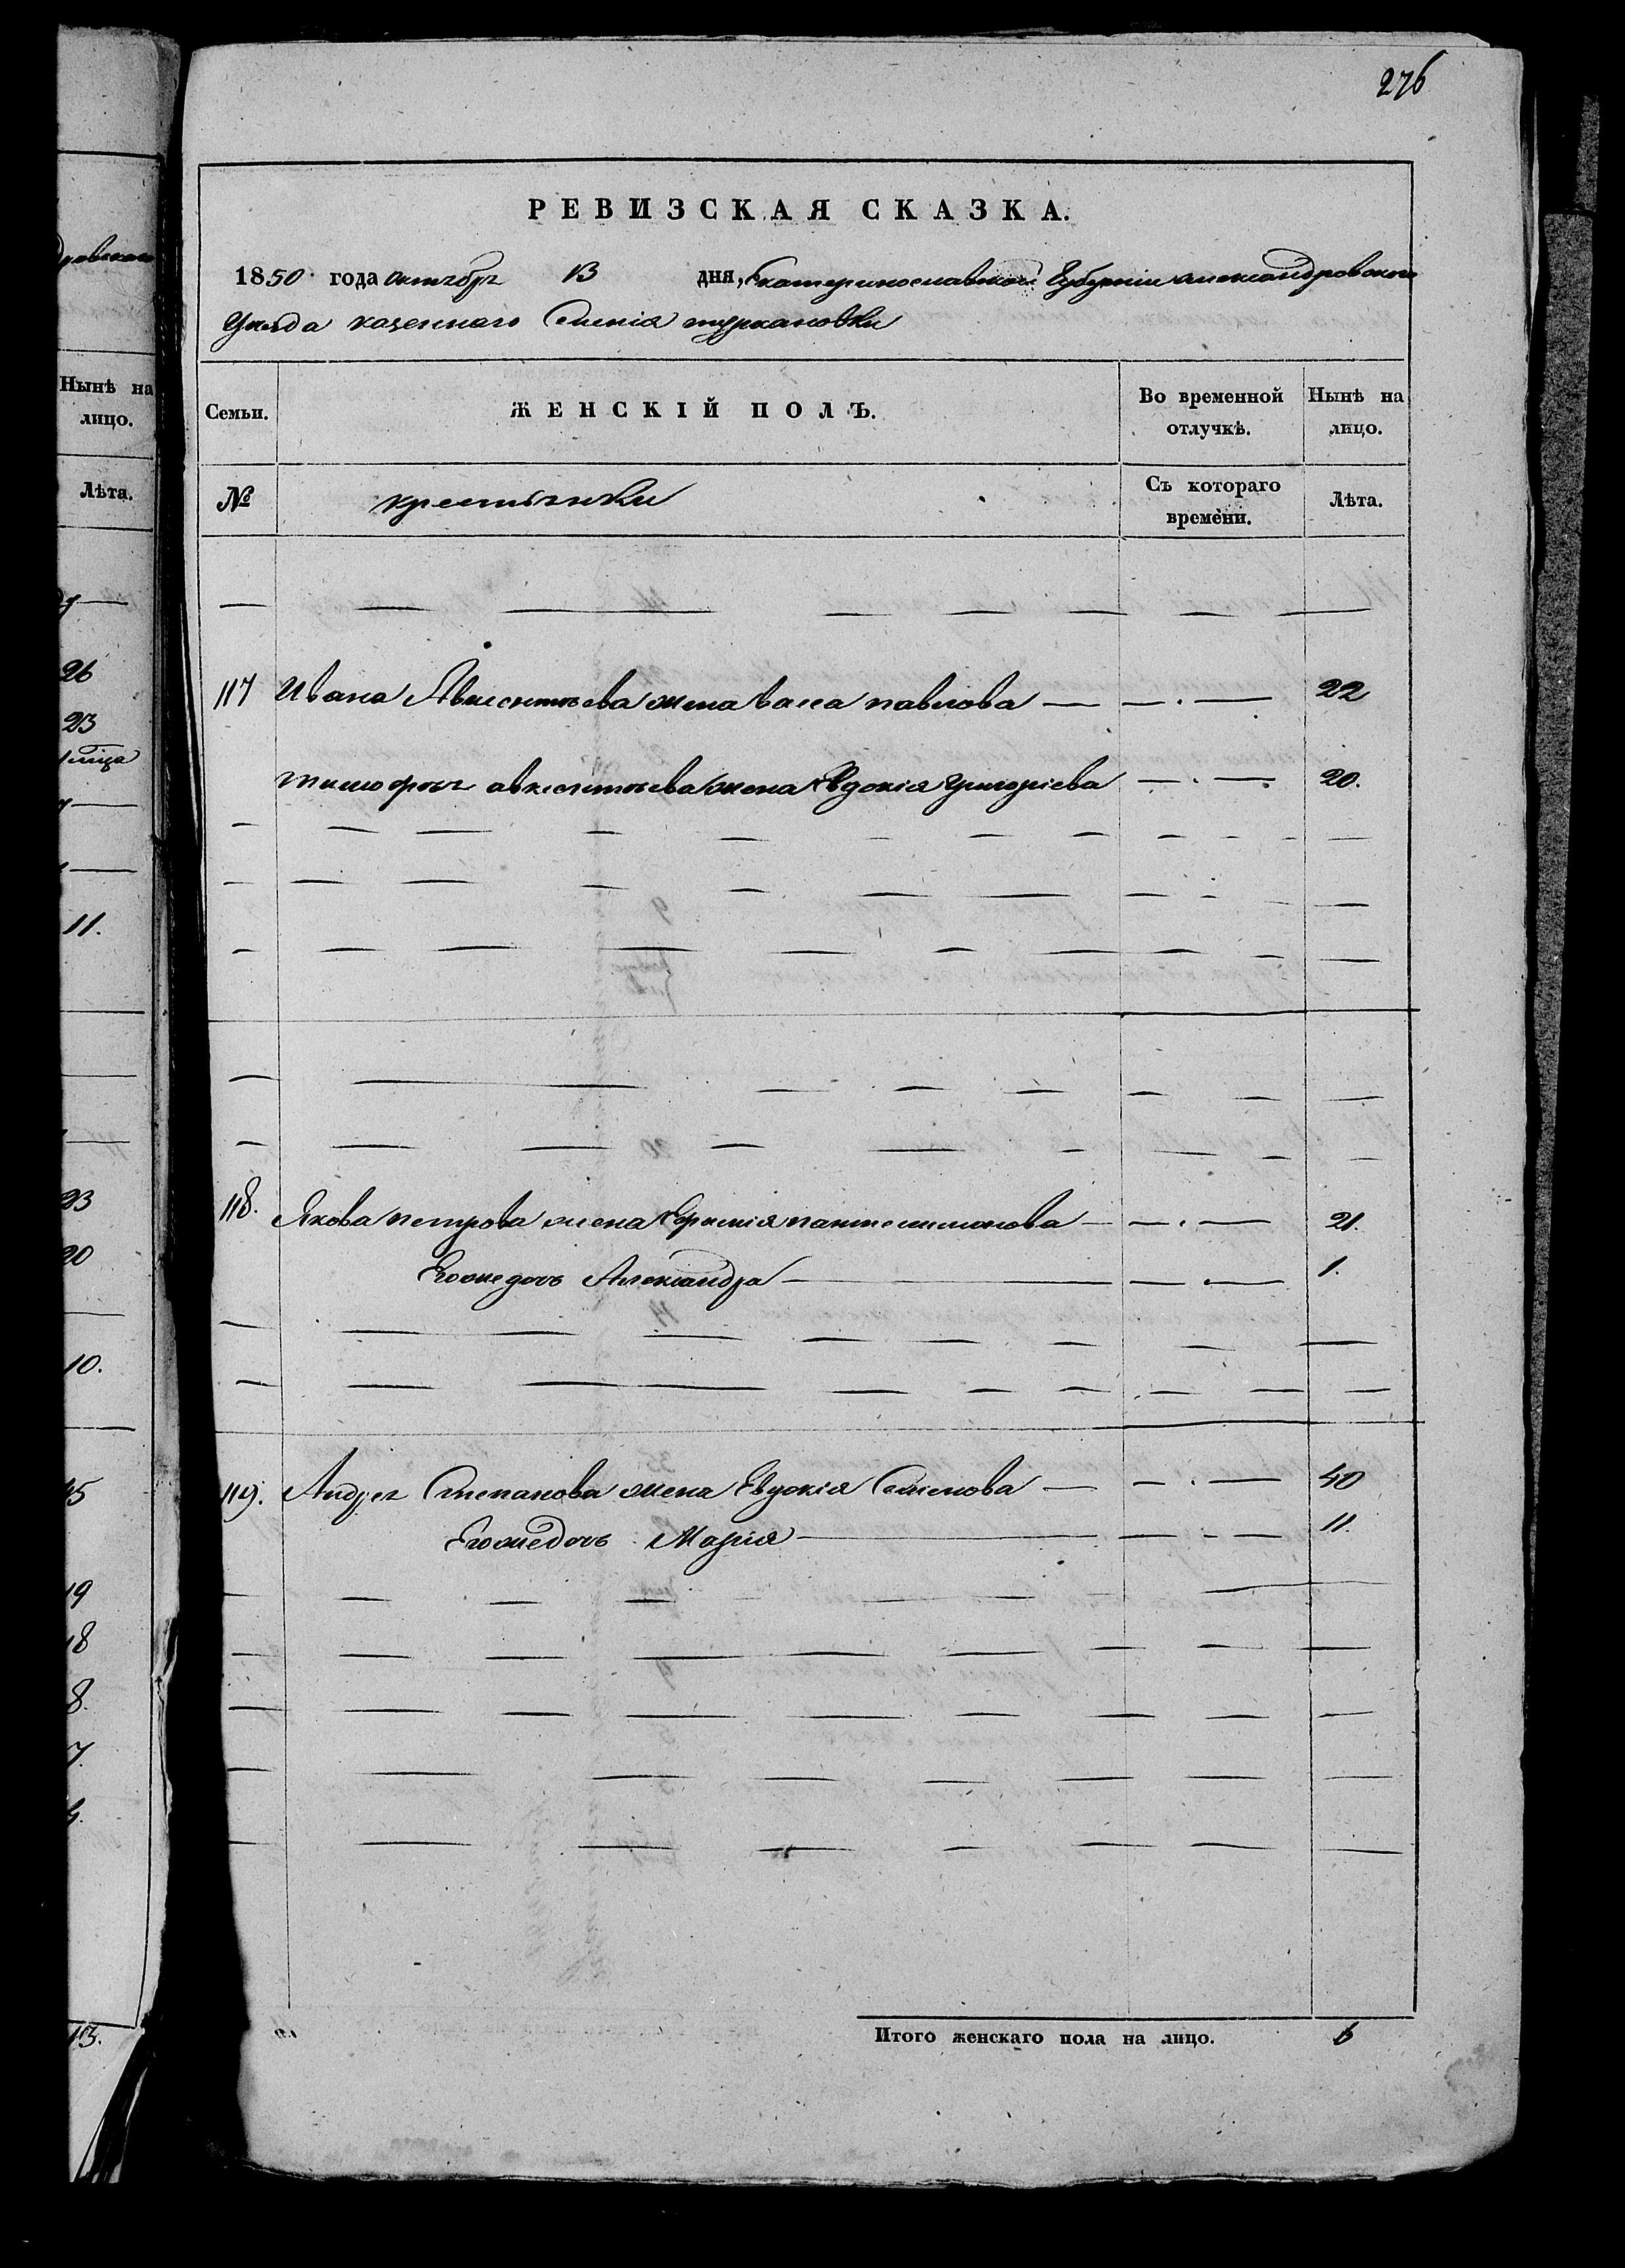 276
РЕВИЗСКАЯ СКАЗКА.
1850 года октября 13 дня, Екатеринославской Губернии александровского
Уезда казенного Селенія туркановки
Семьи. ЖЕНСКІЙ ПОЛЪ. Во временной отлучкѣ. Нынѣ на лицо.
№ крестьянки Съ котораго времени. Лѣта.
117 Ивана Авксентьева жена Васса павлова 22
тимофея авксентьева жена Евдокія Григоріева 20.
118. Якова петрова жена Ефимія пантелимонова 21.
Егожедочь Александра 1.
119. Андрея Степанова жена Евдокія Семенова 40
Егожедочь Марія 11.
Итого женскаго пола на лицо. 6
Нынѣ на
лицо.
Лѣта.
26
23
11.
23
20
10.
45
19
18
8.
7.
13.